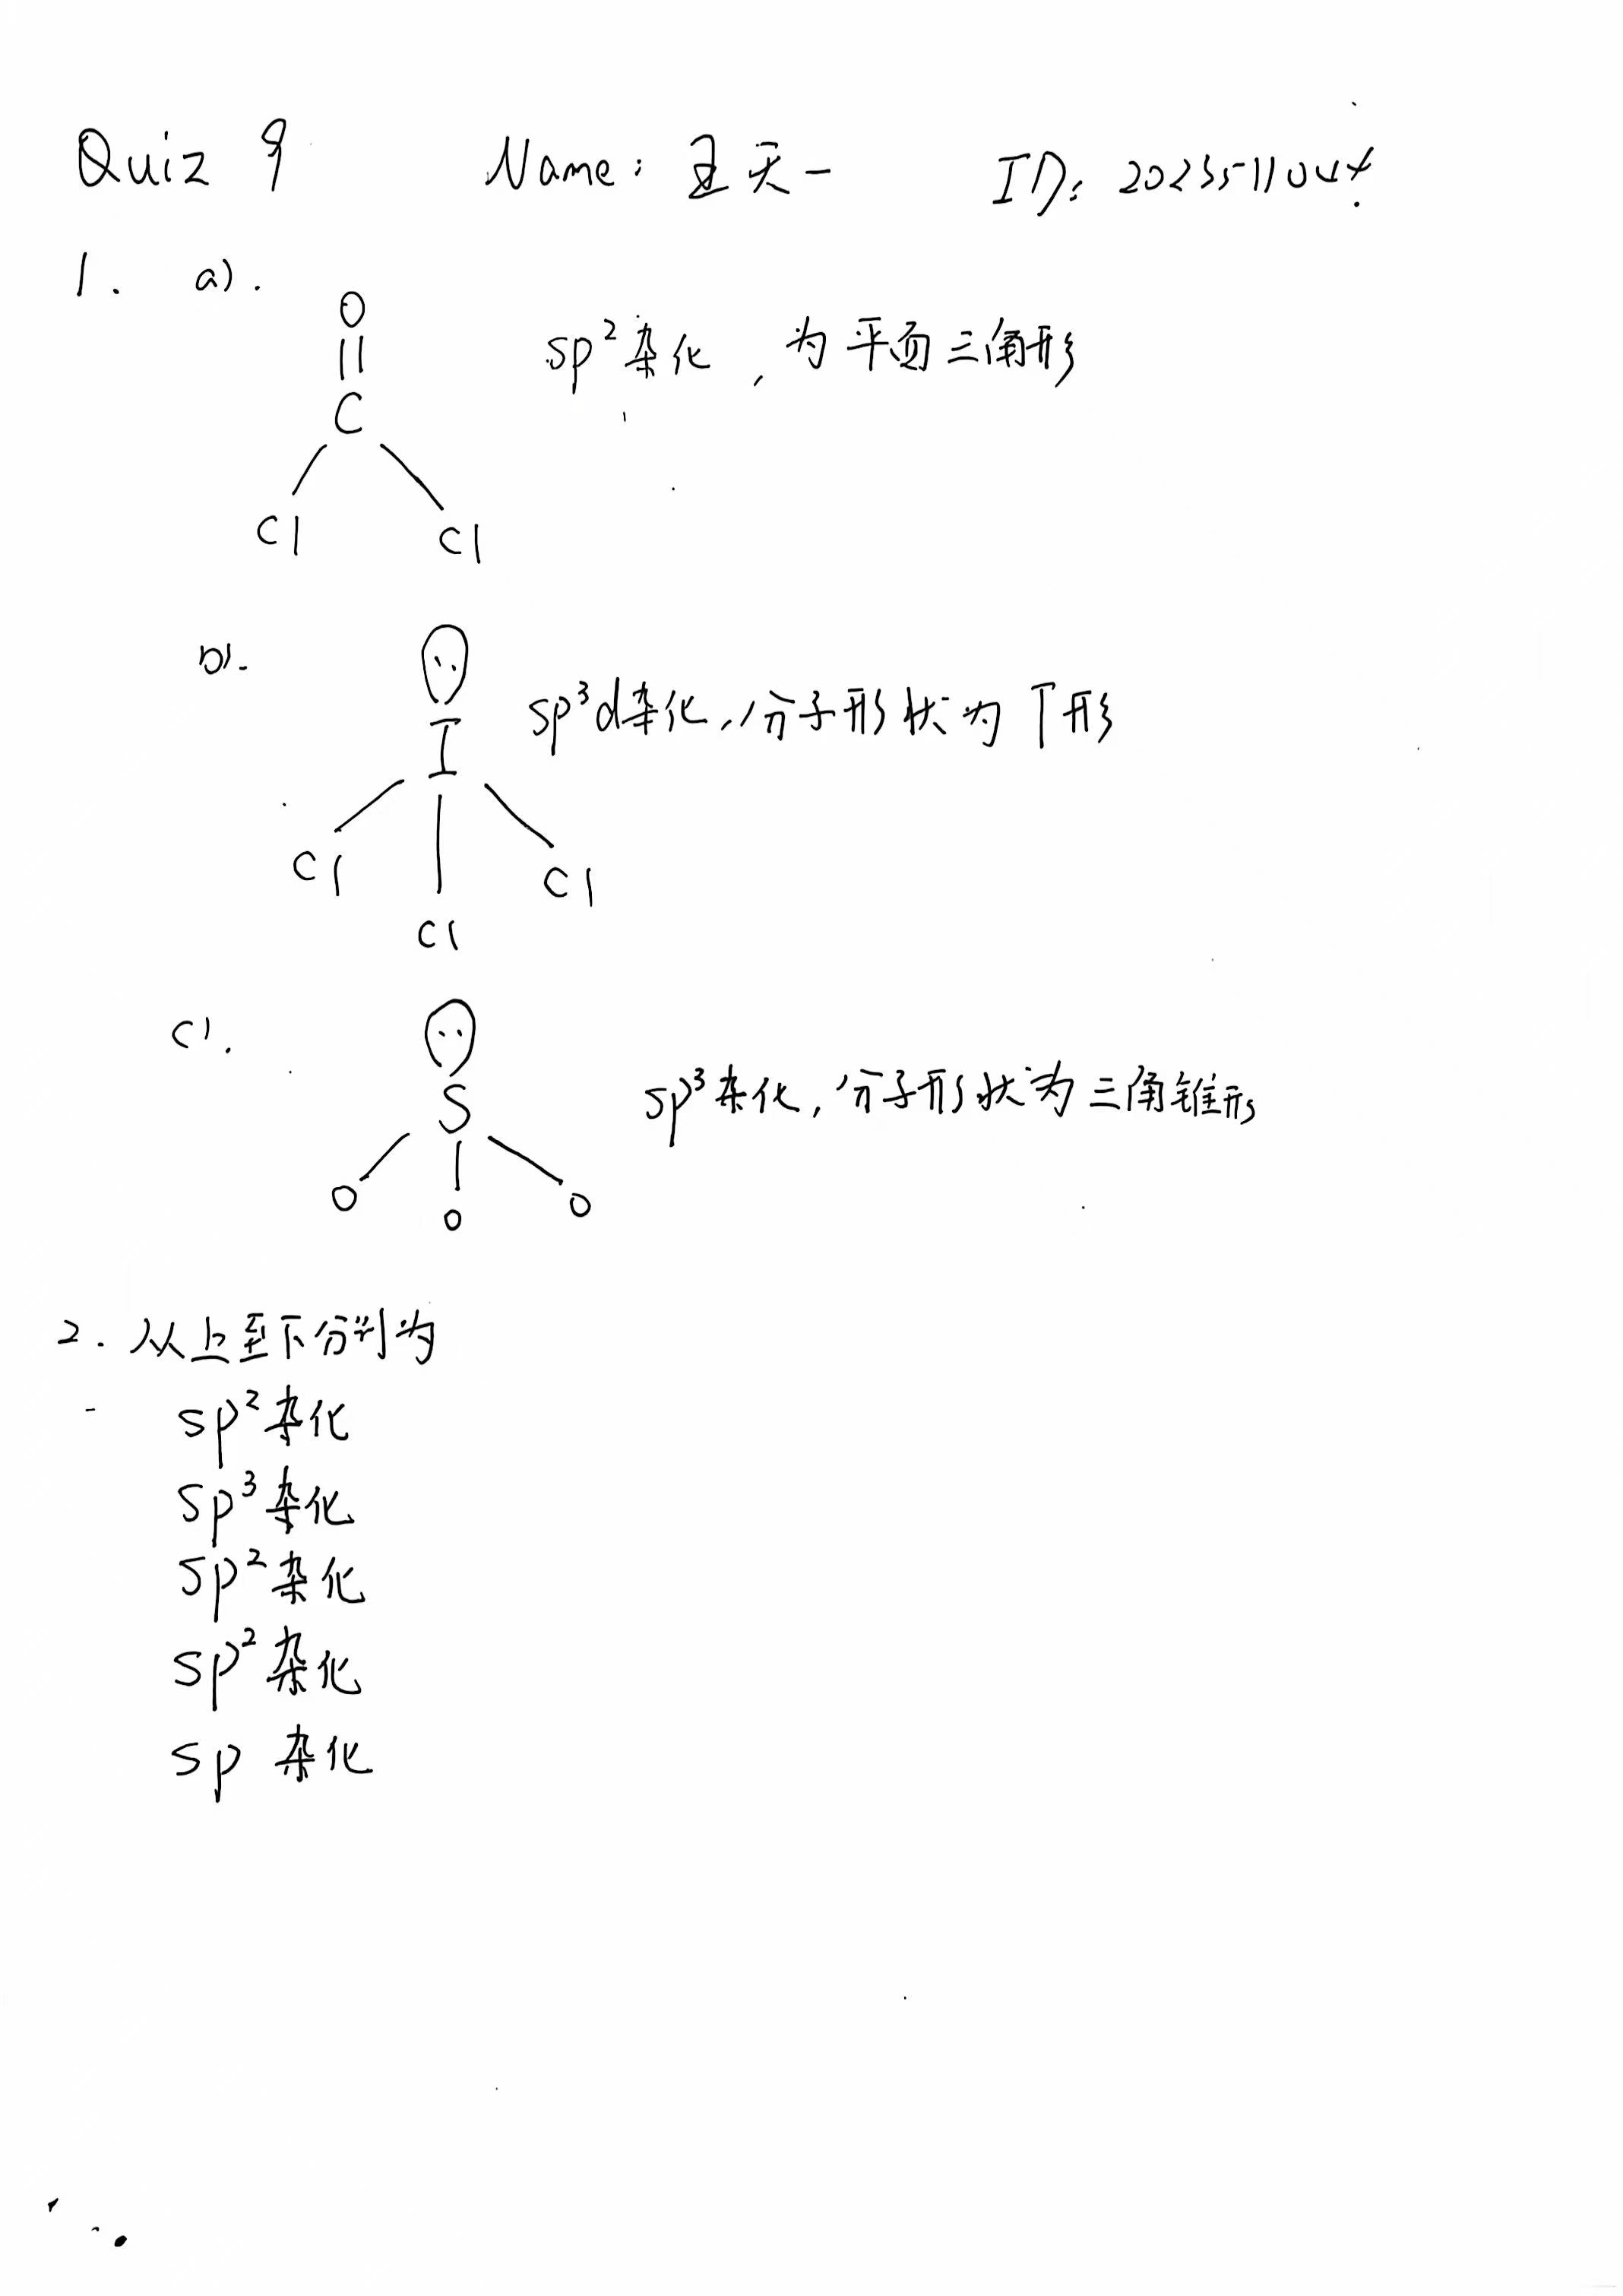 Quiz 9 Name: 王天一 ID:
1. a).
O
C
Cl Cl
sp²杂化,为平面三角形
b).
I
Cl Cl
Cl
sp³d杂化,分子形状为T形
c).
S
O O O
sp³杂化,分子形状为三角锥形
2. 从上至下分别为
sp²杂化
sp³杂化
sp²杂化
sp²杂化
sp 杂化